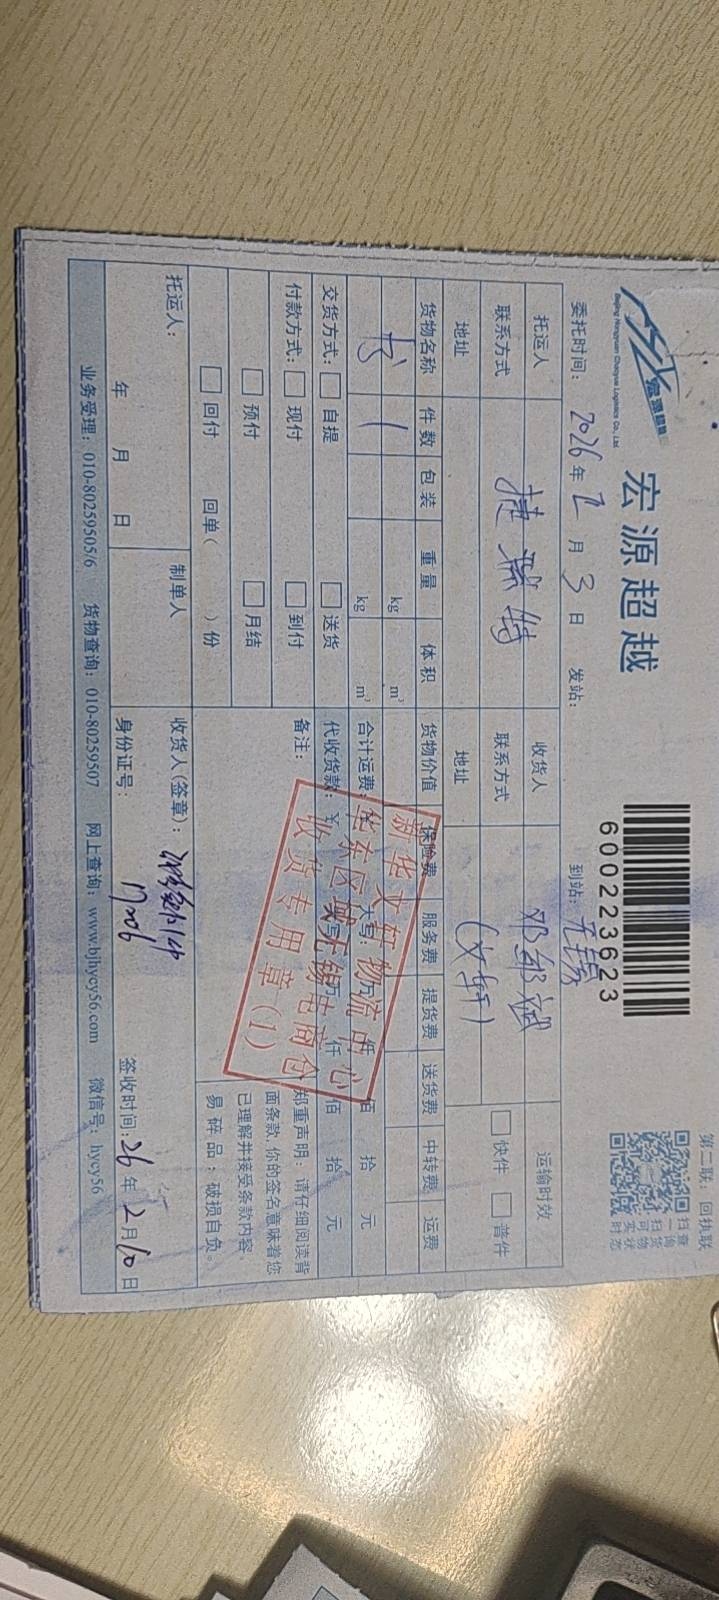 宏源超越
Beijing Hongyuan Chaoyue Logistics Co., Ltd.
宏源超越
600223623
第二联：回执联
扫一扫可实时
查询货物状态
委托时间：2026年2月3日 发站： 到站：无锡
托运人 收货人 运输时效
联系方式 捷 特 联系方式 邓 斌 快件 普件
地址 地址 (文轩)
货物名称 件数 包装 重量 体积 货物价值 保险费 服务费 提货费 送货费 中转费 运费
书 1 kg m³
kg m³ 合计运费： 大写： 万 仟 佰 拾 元
交货方式： 自提 送货 代收货款：￥ 大写： 万 仟 佰 拾 元
付款方式： 现付 到付 备注：
预付 月结
回付 回单（ ）份
郑重声明：请仔细阅读背
面条款，你的签名意味着您
已理解并接受条款内容。
易碎品：破损自负。
新华文轩物流中心
华东区域无锡电商仓
收货专用章(1)
托运人： 制单人 收货人(签章)：
年 月 日 身份证号： 签收时间：26年2月10日
业务受理：010-80259505/6 货物查询：010-80259507 网上查询：www.bjhycy56.com 微信号：hycy56